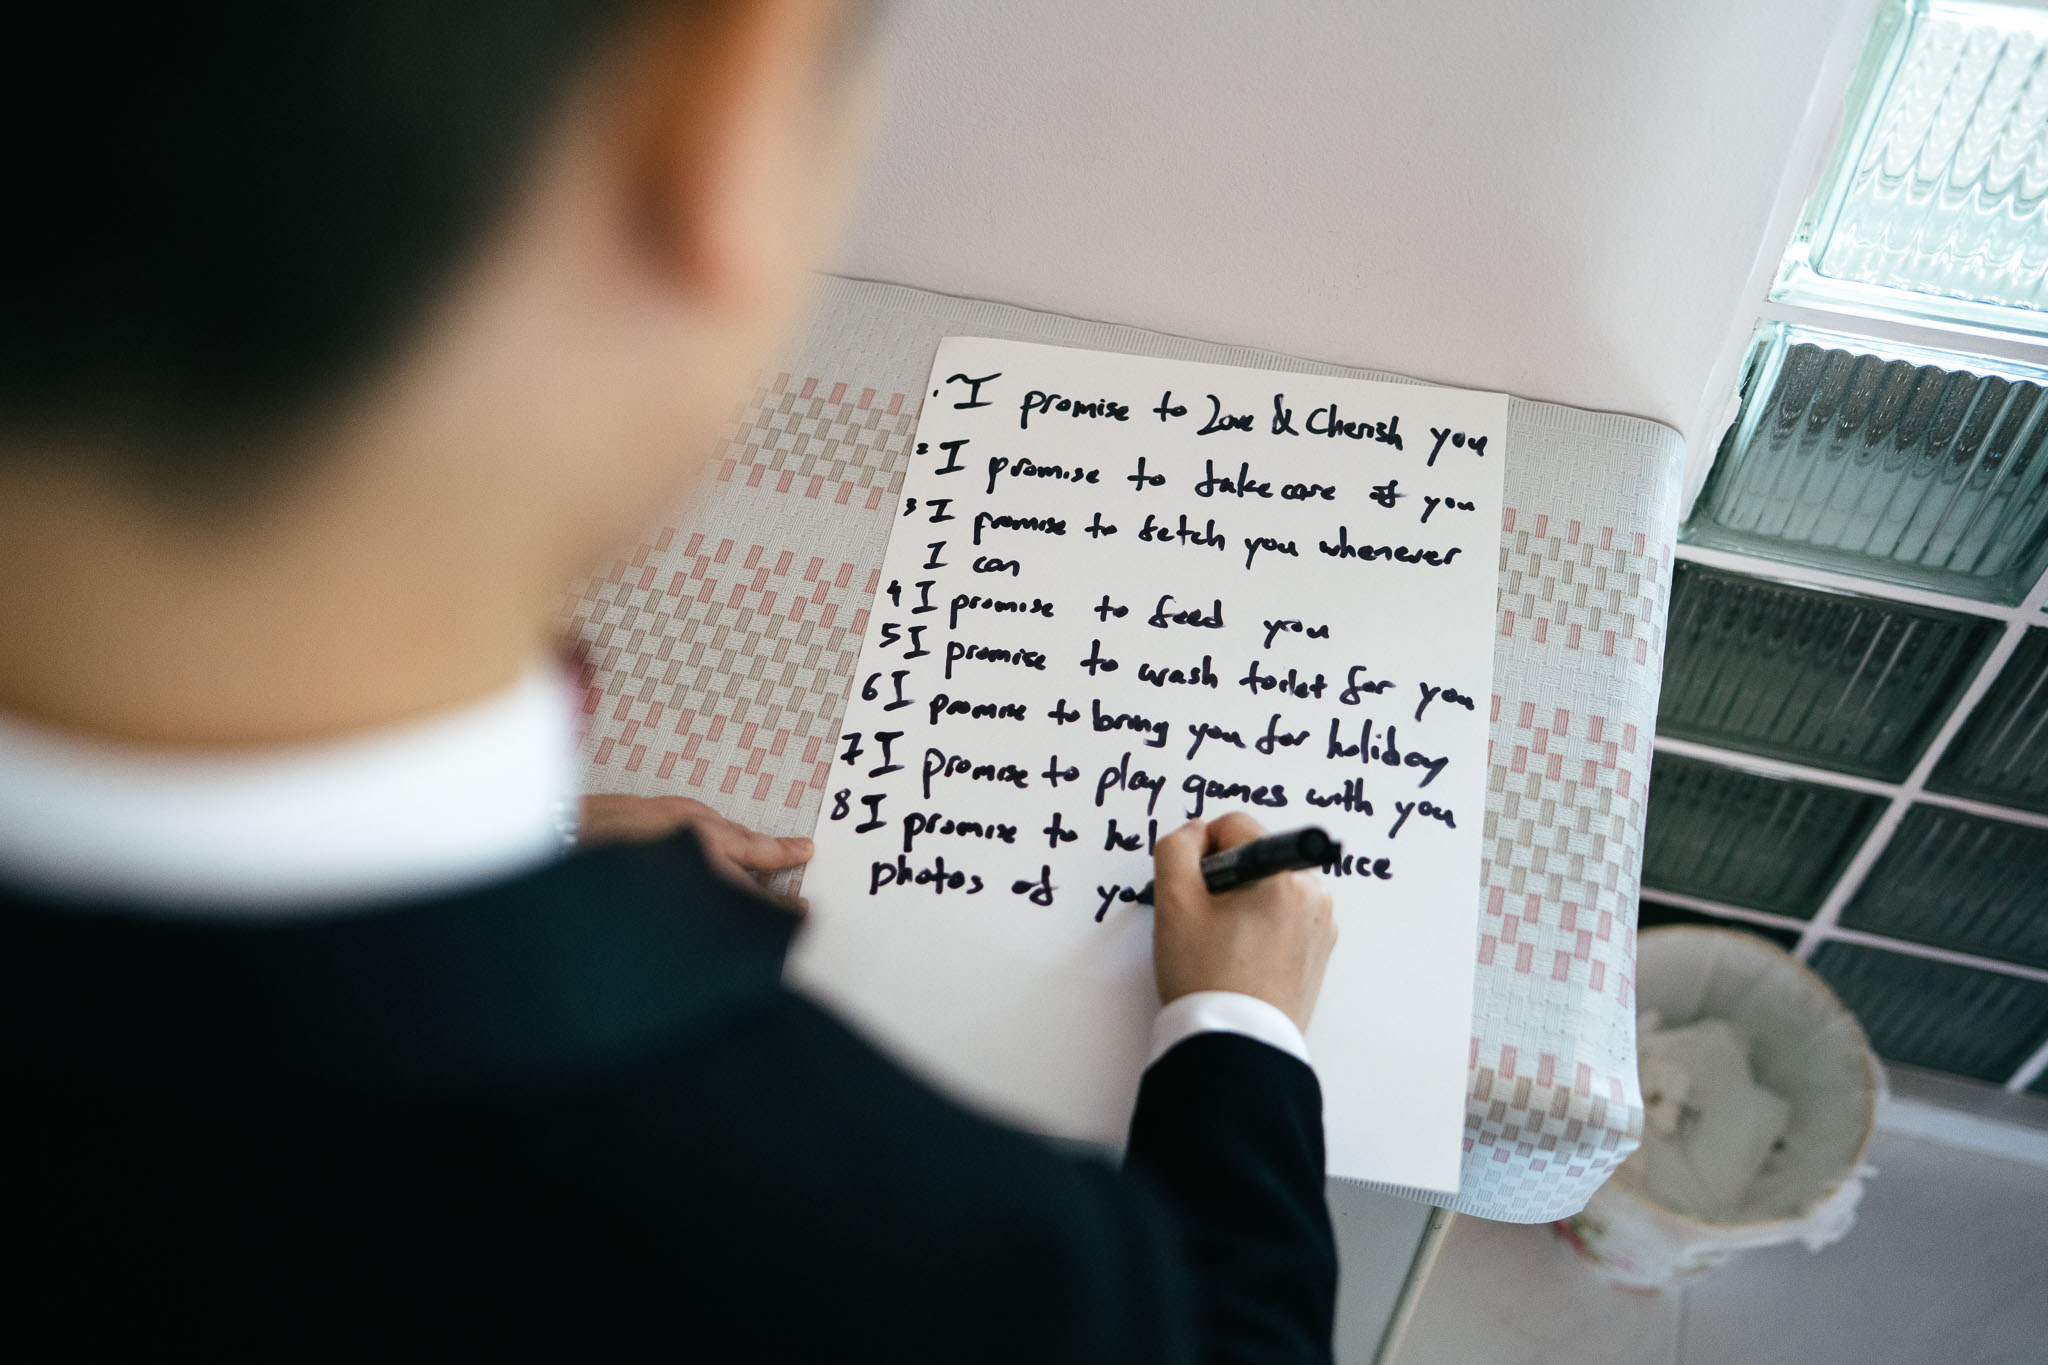 . I promise to Love & Cherish you
2 I promise to take care of you
3 I promise to fetch you whenever
I can
4 I promise to feed you
5 I promise to wash toilet for you
6 I promise to bring you for holiday
7 I promise to play games with you
8 I promise to hel nice
photos of you